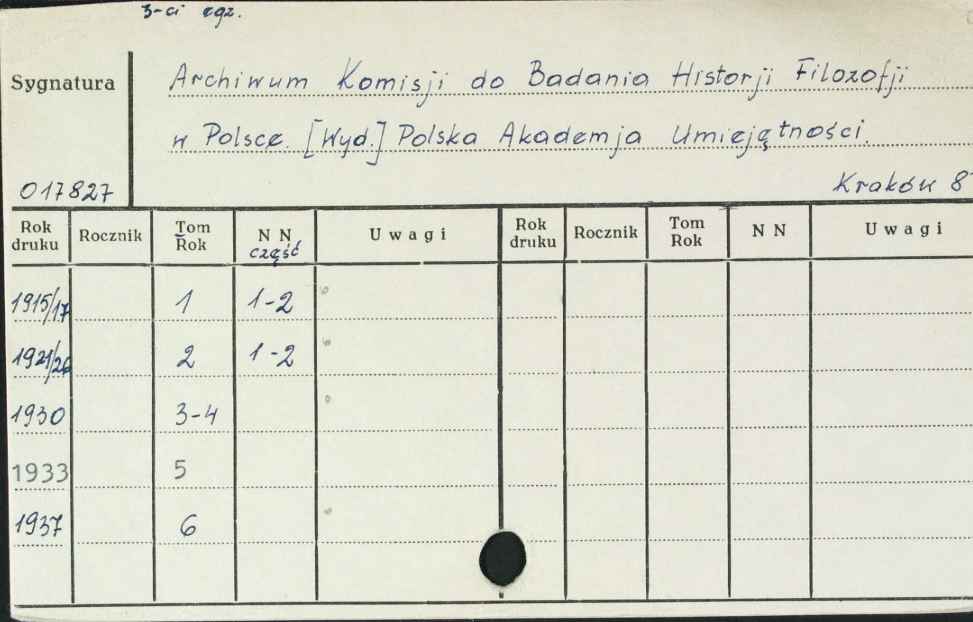 3-ci egz.
Sygnatura
Archiwum Komisji do Badania Historji Filozofji
w Polsce. [Wyd.] Polska Akademja Umiejętności.
017827
Kraków 8°
Rok druku Rocznik Tom Rok N N część Uwagi Rok druku Rocznik Tom Rok N N Uwagi
1915/17 1 1-2
1921/26 2 1-2
1930 3-4
1933 5
1937 6